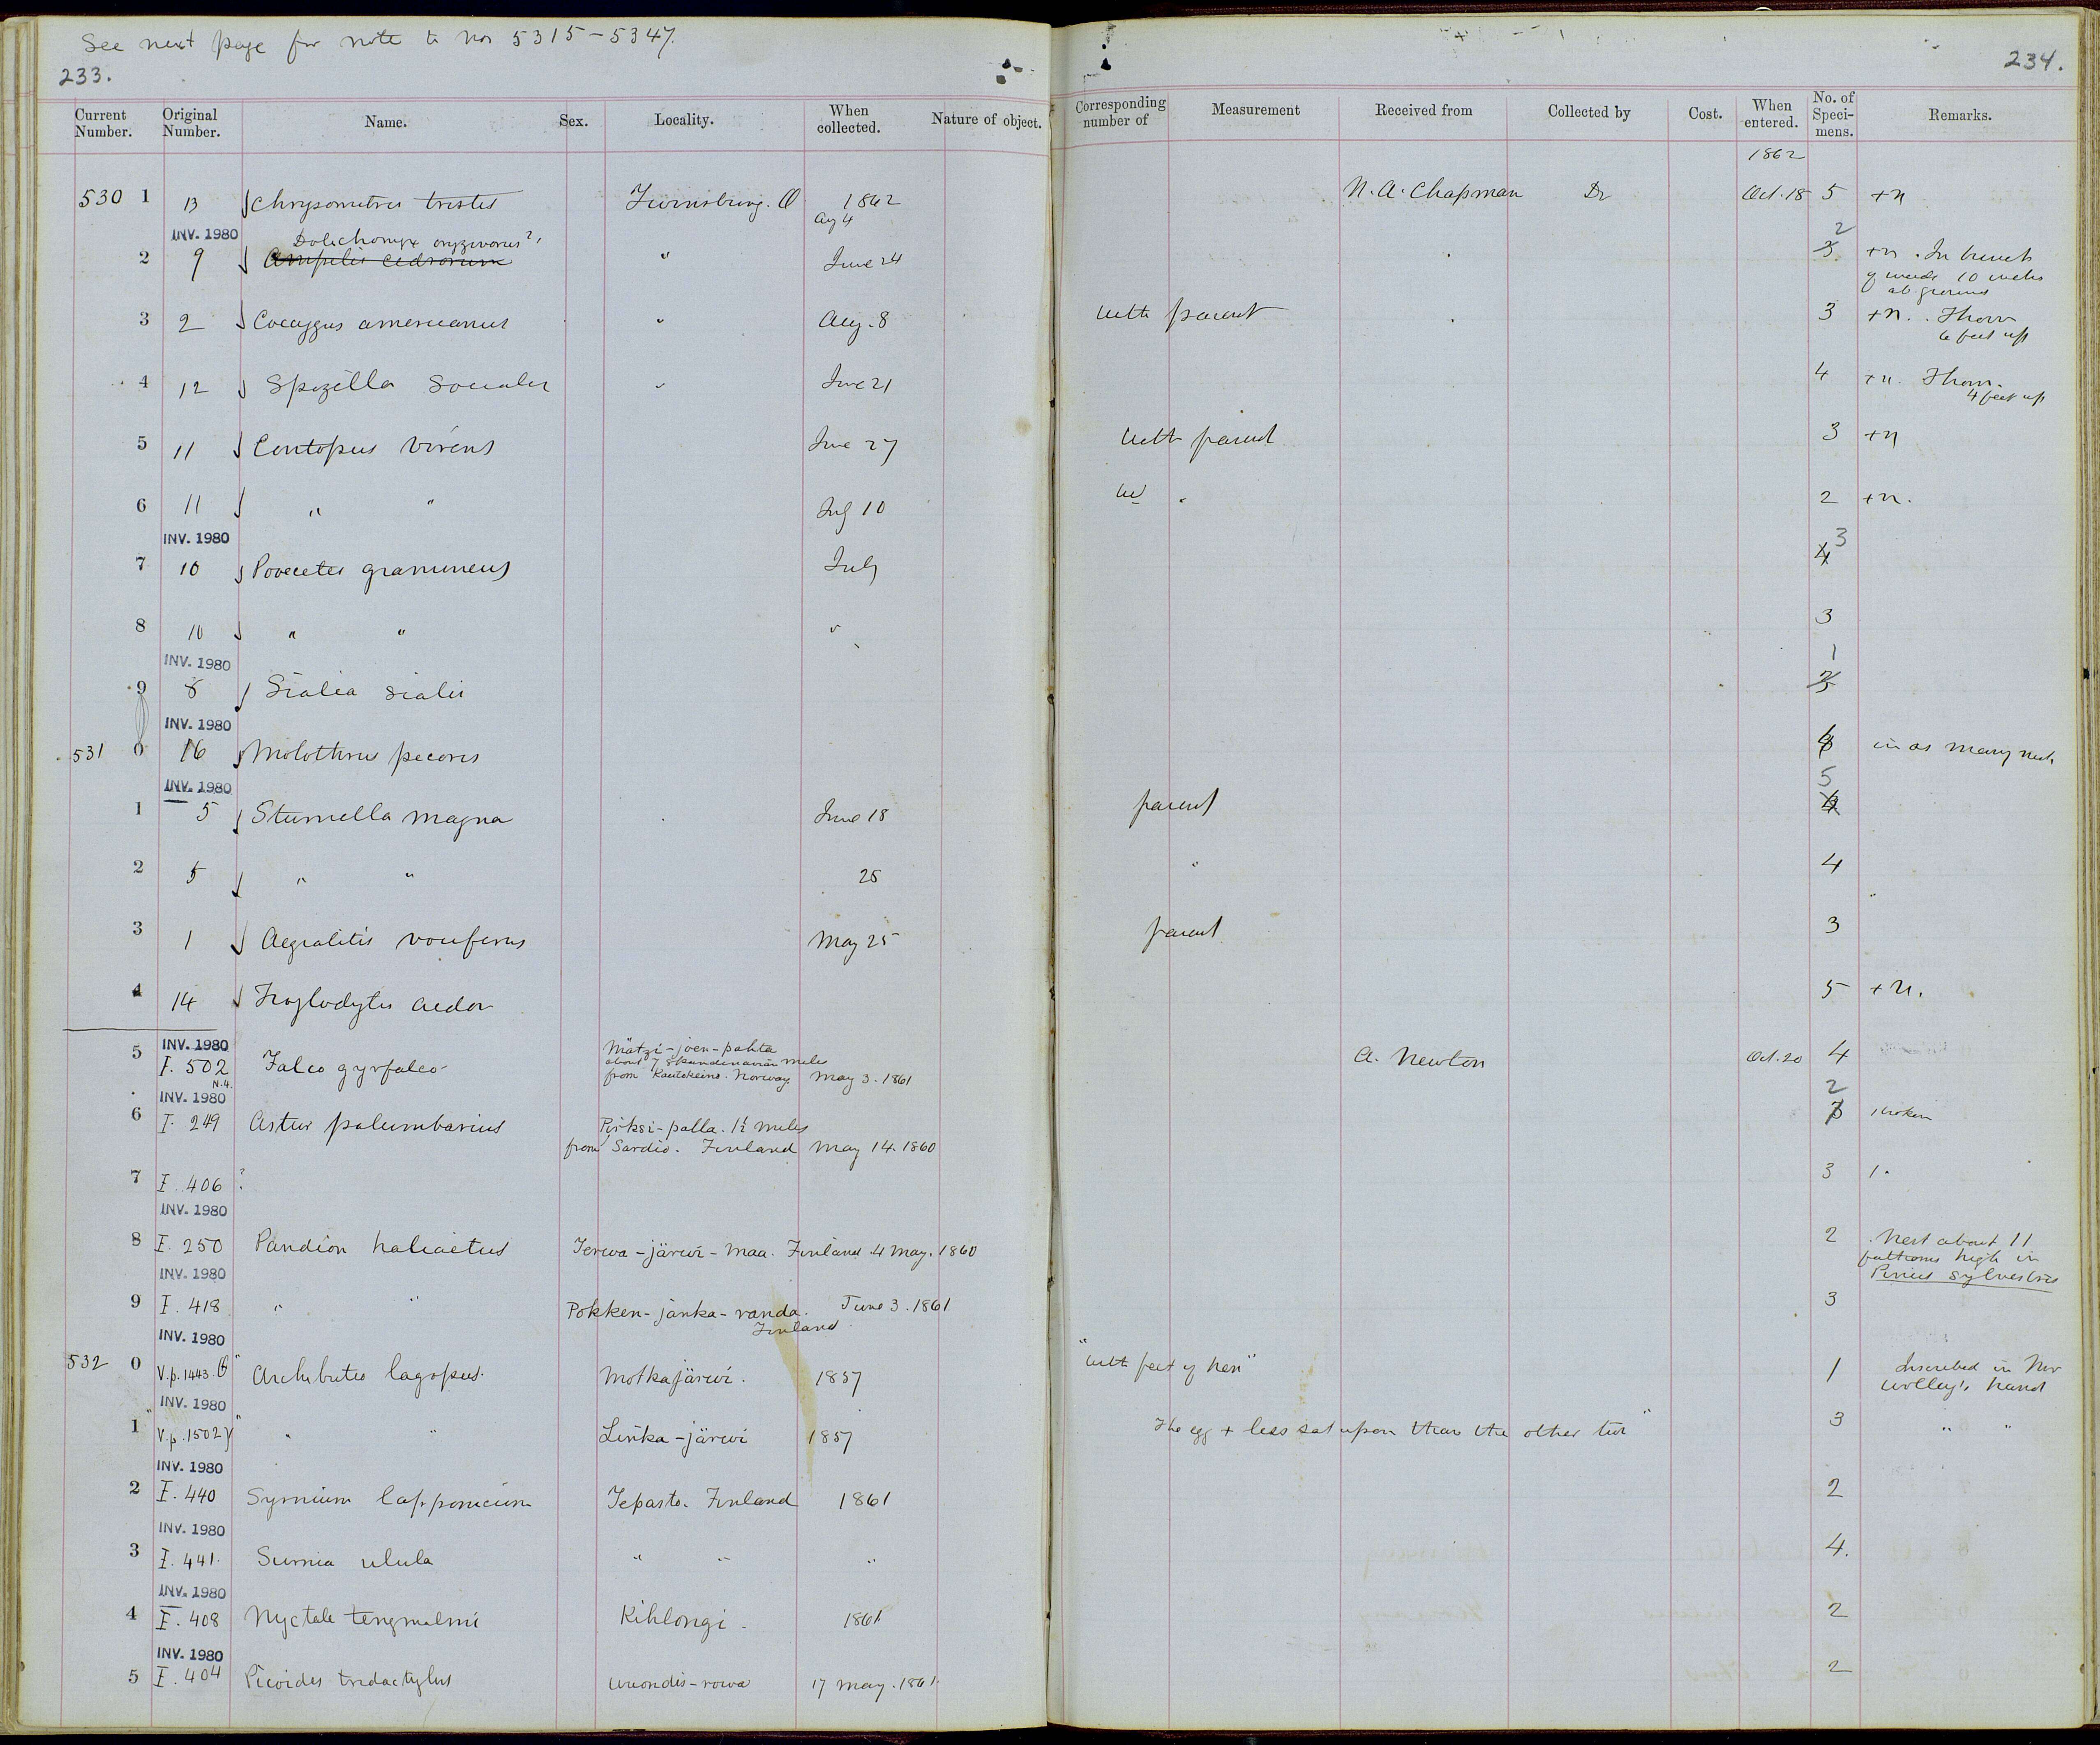 See next page for note to Nos 5315-5347.
233.
234.
Current Number. Original Number. Name. Sex. Locality. When collected. Nature of object. Corresponding number of Measurement Received from Collected by Cost. When entered. No. of Specimens. Remarks.
1862
530 1 13 Chrysomitris tristis Twinsburg. O 1862 Aug 4 N. A. Chapman Do Oct. 18 5 +n
INV. 1980 Dolichonyx oryzivorus? 2
2 9 Ampelis cedrorum " June 24 3 +n. In bunch of weeds 10 inches ab. ground
3 2 Coccygus americanus " Aug. 8 with parent 3 +n. Thorn 6 feet up
4 12 Spizella socialis " June 21 4 +n. Thorn. 4 feet up
5 11 Contopus virens June 27 with parent 3 +n
6 11 " " July 10 w " 2 +n.
INV. 1980 3
7 10 Pooecetes gramineus July 4
8 10 " " " 3
INV. 1980 1
9 8 Sialia sialis
INV. 1980
531 0 16 Molothrus pecoris in as many nests
INV. 1980 5
1 5 Sturnella magna June 18 parent
2 5 " " 25 " 4
3 1 Aegialitis vociferus May 25 parent 3
4 14 Troglodytes aedon 5 +n.
INV. 1980
5 I. 502 Falco gyrfalco Mätzi-joen-pahta about 7 Skandinavian miles from Kautokeino. Norway May 3. 1861 A. Newton Oct. 20 4
N.4.
INV. 1980 2
6 I. 249 Astur palumbarius Pirksi-palla. 1½ miles from Sardio. Finland May 14. 1860 3 1 broken
7 I. 406 ? 3 1.
INV. 1980
8 I. 250 Pandion haliaetus Jerwa-järwi-maa. Finland. 4 May. 1860 2 Nest about 11 fathoms high in Pinus sylvestris
INV. 1980
9 I. 418 " " Pokken-janka-randa. Finland June 3. 1861 3
INV. 1980
532 0 V.p. 1443. Archibuteo lagopus. Motkajärwi. 1857 "with feet of hen" 1 Inscribed in Mr Wolley's hand
INV. 1980
1 "V.p. 1502 " " Linka-järwi 1857 The egg + less sat upon than the other two" 3 " "
INV. 1980
2 I. 440 Syrnium lapponicum Jepasto. Finland 1861 2
INV. 1980
3 I. 441. Surnia ulula " " " 4.
INV. 1980
4 I. 408 Nyctale tengmalmi Kihlongi. 1861 2
INV. 1980
5 I. 404 Picoides tridactylus Uuondis-rowa 17 May. 1861. 2